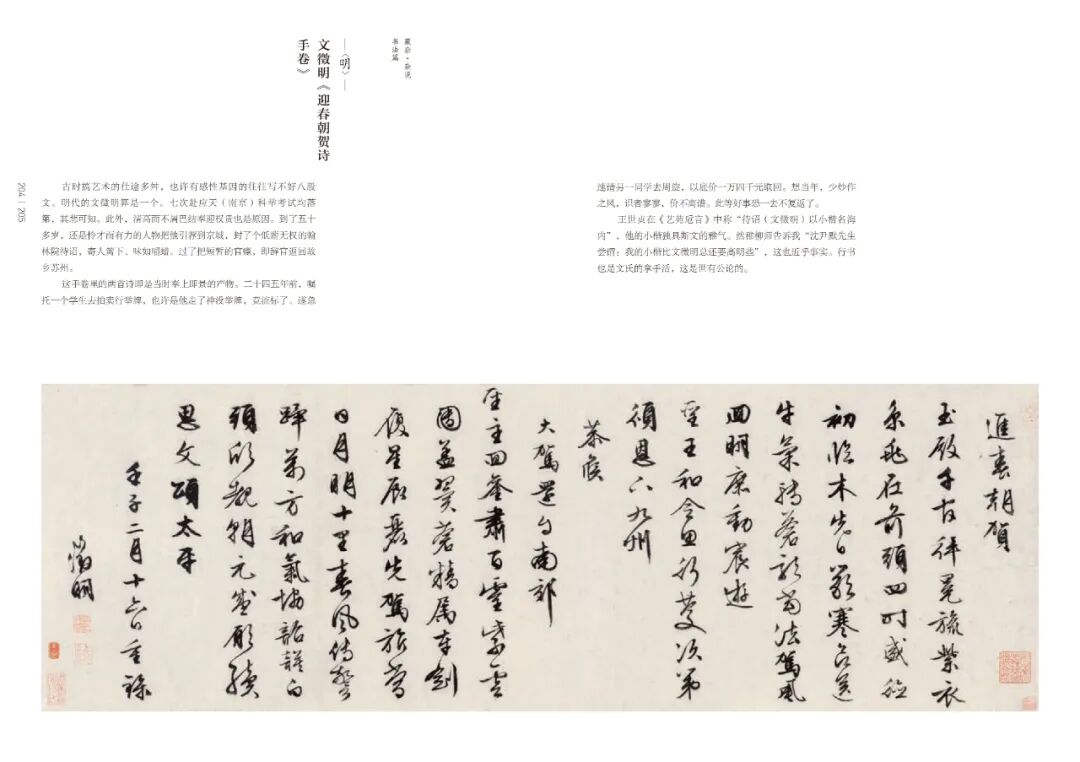 藏杂·杂说
书法篇
—〈明〉—
文徵明《迎春朝贺诗
手卷》
204 | 205
古时搞艺术的仕途多舛，也许有感性基因的往往写不好八股
文。明代的文徵明算是一个。七次赴应天（南京）科举考试均落
第，其悲可知。此外，清高而不屑巴结奉迎权贵也是原因。到了五十
多岁，还是怜才而有力的人物把他引荐到京城，封了个低薪无权的翰
林院待诏，寄人篱下、味如嚼蜡。过了把短暂的官瘾，即辞官返回故
乡苏州。
这手卷里的两首诗即是当时奉上即景的产物。二十四五年前，嘱
托一个学生去拍卖行举牌，也许是他走了神没举牌，竟流标了。遂急
速请另一同学去周旋，以底价一万四千元取回。想当年，少炒作
之风，识者寥寥，价不离谱。此等好事恐一去不复返了。
王世贞在《艺苑卮言》中称“待诏（文徵明）以小楷名海
内”，他的小楷独具斯文的雅气。然稚柳师告诉我“沈尹默先生
尝谓：我的小楷比文徵明总还要高明些”，这也近乎事实。行书
也是文氏的拿手活，这是世有公论的。
進春朝賀
玉殿千官拜冕旒紫衣
京兆在前頭四時盛德
初臨木先日嚴寒已送
牛氣轉蒼龍當法駕風
迴明庶動宸遊
聖王和令思行慶次第
頒恩下九州
恭候
大駕還自南郊
聖主回鑾肅百靈紫雲
團蓋翼蒼精屬車劍
履星辰麗先駕旂常
日月明十里春風傳警
蹕萬方和氣協韶韺白
頭欣覩朝元盛願續
思文頌太平
壬子二月十六日重錄
徵明